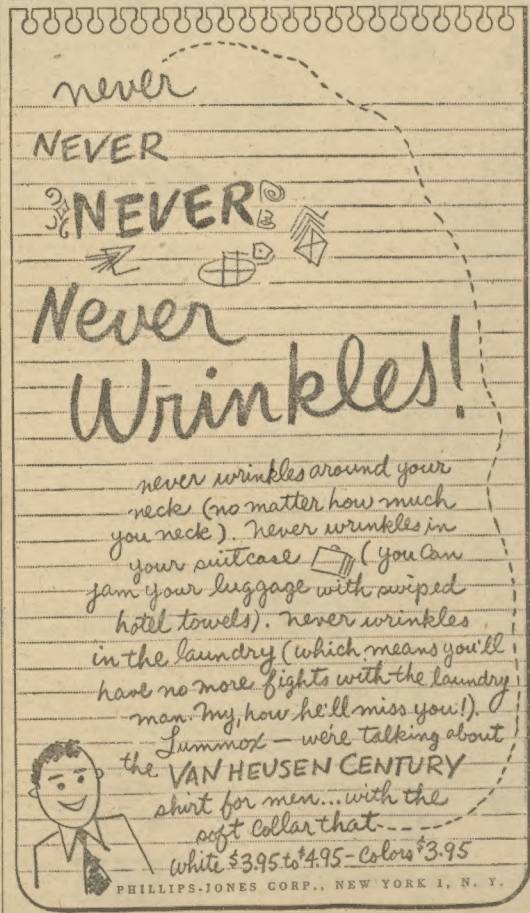 never
NEVER
NEVER
Never
Wrinkles!
never wrinkles around your
neck (no matter how much
you neck). Never wrinkles in
your suitcase (you can
jam your luggage with swiped
hotel towels). never wrinkles
in the laundry (which means you'll
have no more fights with the laundry
man. My, how he'll miss you!).
Lummox — we're talking about
the VAN HEUSEN CENTURY
shirt for men...with the
soft collar that
white $3.95 to $4.95 - colors $3.95
PHILLIPS-JONES CORP., NEW YORK 1, N. Y.